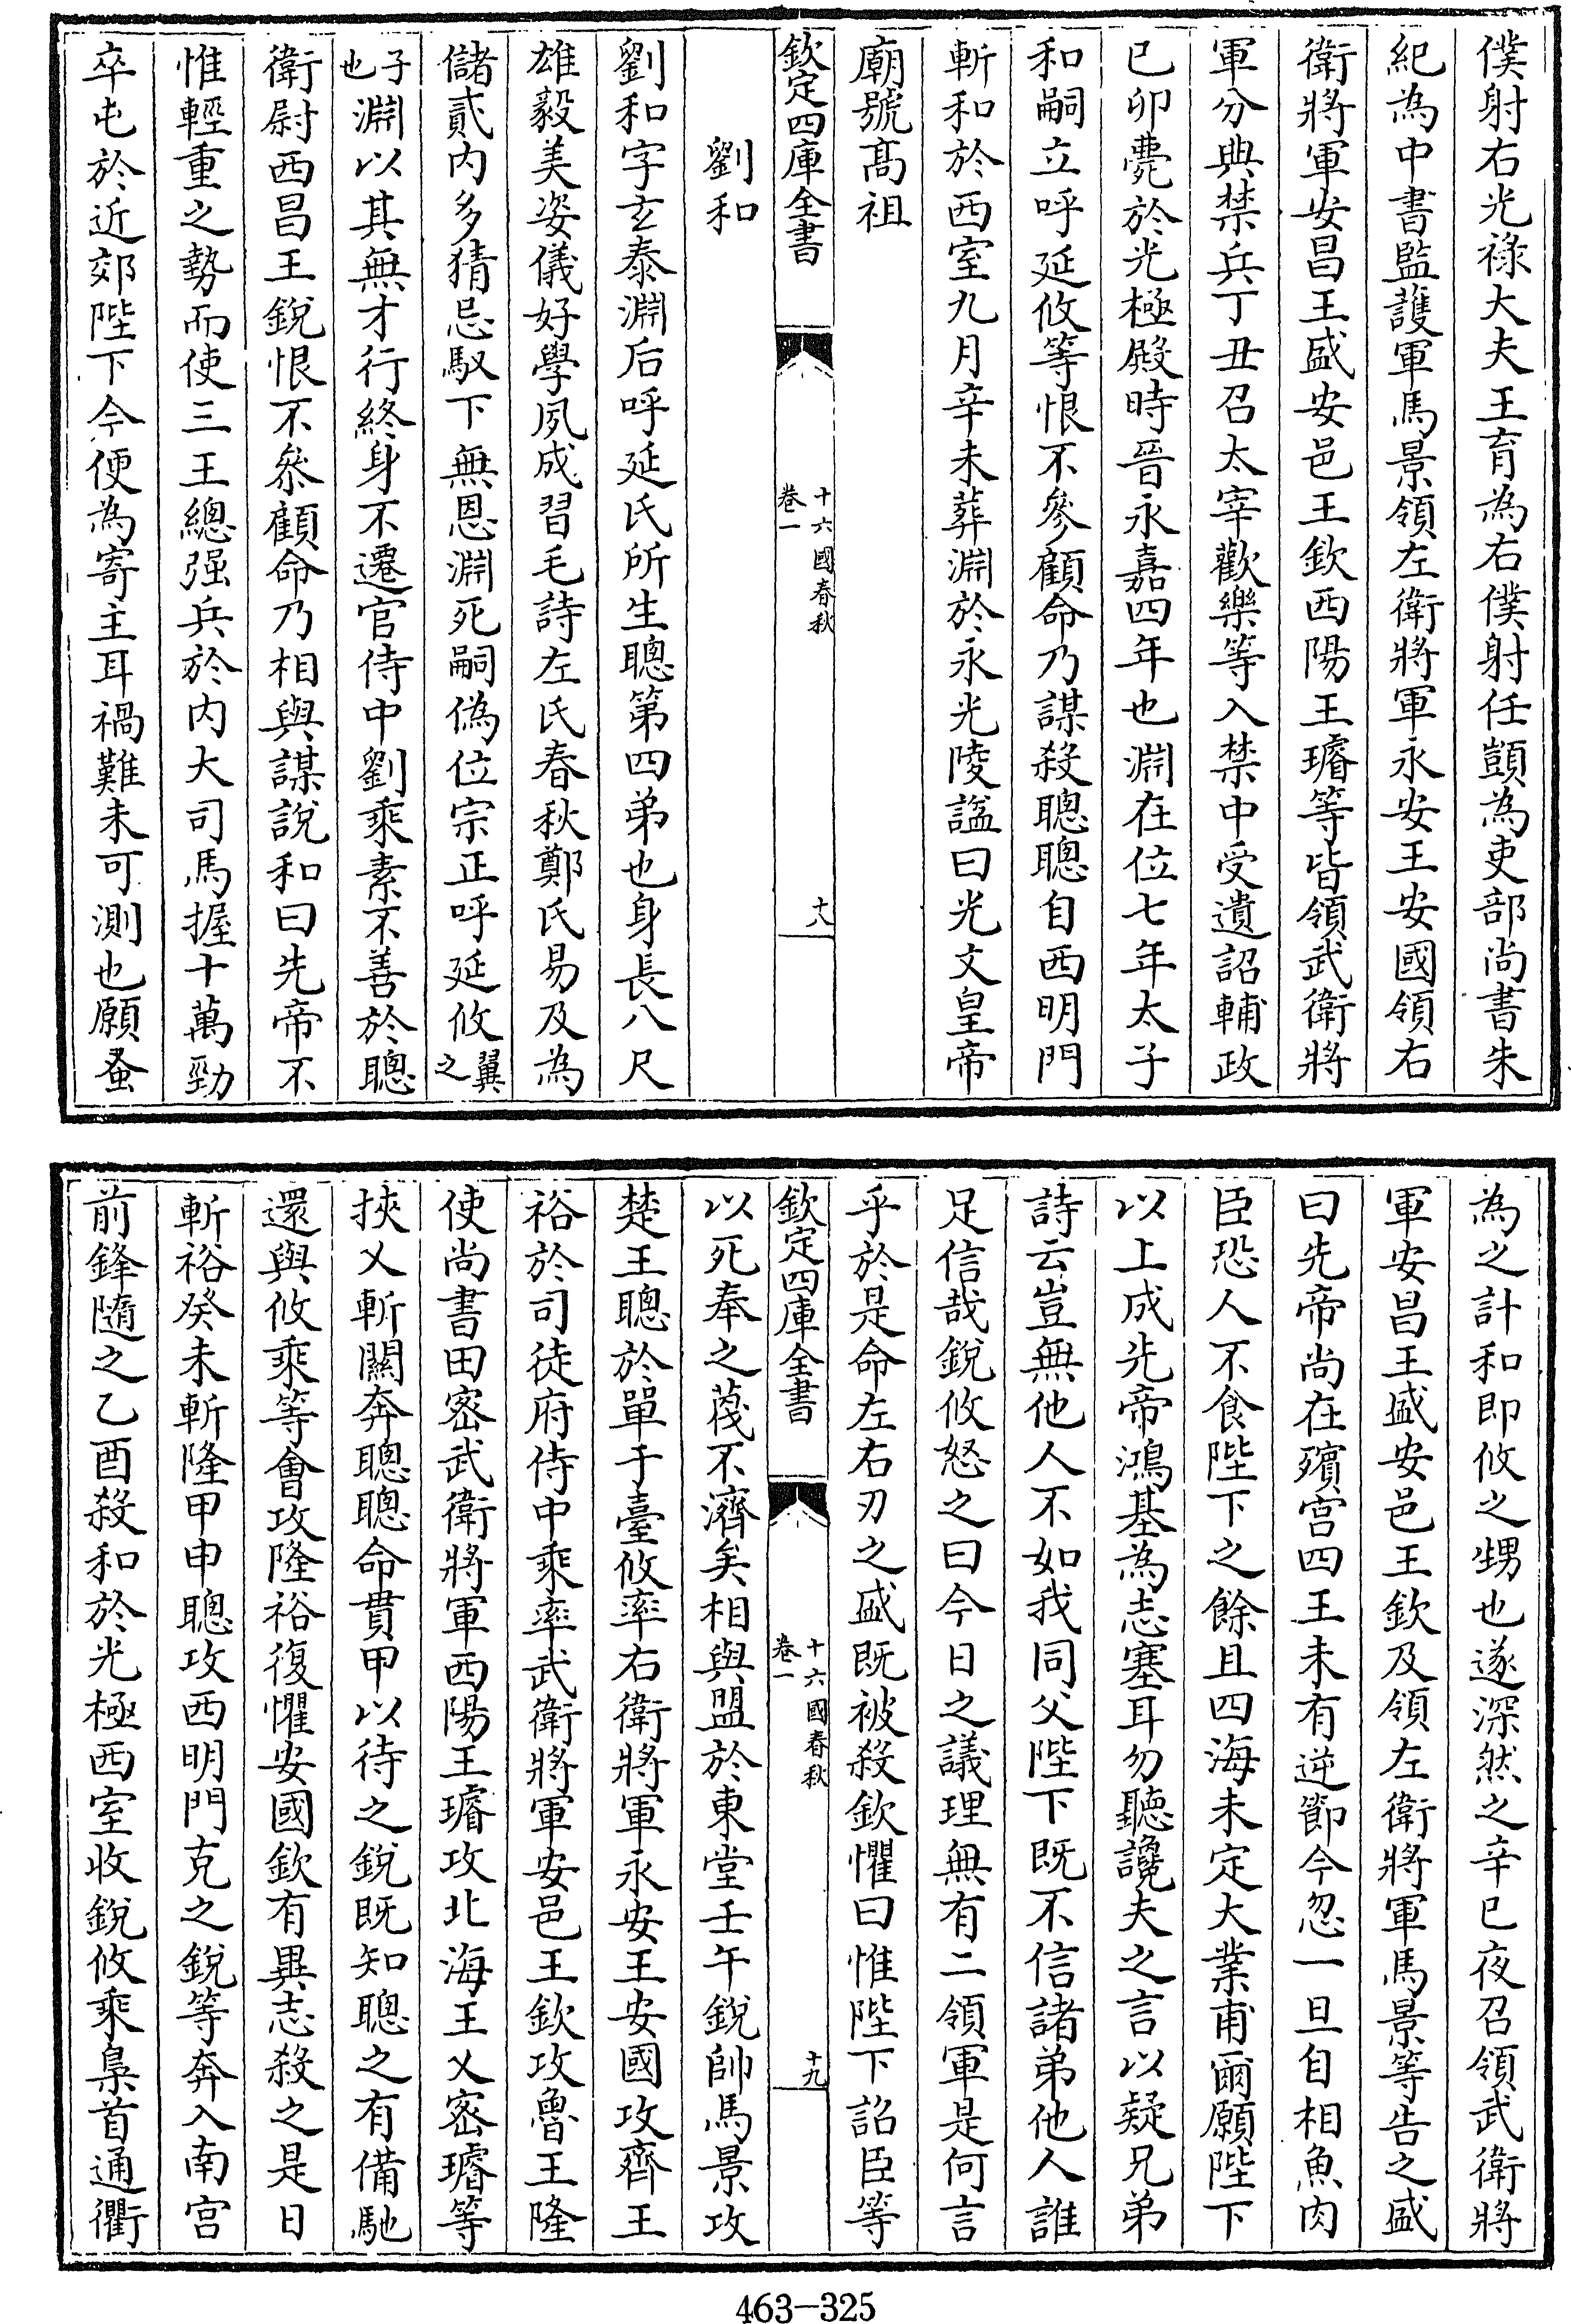 僕射右光祿大夫王育為右僕射任顗為吏部尚書朱
紀為中書監護軍馬景領左衛將軍永安王安國領右
衛將軍安昌王盛安邑王欽西陽王璿等皆領武衛將
軍分典禁兵丁丑召太宰歡樂等入禁中受遺詔輔政
已卯薨於光極殿時晉永嘉四年也淵在位七年太子
和嗣立呼延攸等恨不參顧命乃謀殺聰聰自西明門
斬和於西室九月辛未葬淵於永光陵諡曰光文皇帝
廟號髙祖
欽定四庫全書
十六國春秋
卷一
十八
劉和
劉和字玄泰淵后呼延氏所生聰第四弟也身長八尺
雄毅美姿儀好學夙成習毛詩左氏春秋鄭氏易及為
儲貳内多猜忌馭下無恩淵死嗣偽位宗正呼延攸翼之
子也淵以其無才行終身不遷官侍中劉乘素不善於聰
衛尉西昌王銳恨不叅顧命乃相與謀說和曰先帝不
惟輕重之勢而使三王總强兵於内大司馬握十萬勁
卒屯於近郊陛下今便為寄主耳禍難未可測也願蚤
為之計和即攸之甥也遂深然之辛巳夜召領武衛將
軍安昌王盛安邑王欽及領左衛將軍馬景等告之盛
曰先帝尚在殯宫四王未有逆節今忽一旦自相魚肉
臣恐人不食陛下之餘且四海未定大業甫爾願陛下
以上成先帝鴻基為志塞耳勿聽讒夫之言以疑兄弟
詩云豈無他人不如我同父陛下既不信諸弟他人誰
足信哉銳攸怒之曰今日之議理無有二領軍是何言
乎於是命左右刃之盛既被殺欽懼曰惟陛下詔臣等
欽定四庫全書
十六國春秋
卷一
十九
以死奉之蔑不濟矣相與盟於東堂壬午銳帥馬景攻
楚王聰於單于臺攸率右衛將軍永安王安國攻齊王
裕於司徒府侍中乘率武衛將軍安邑王欽攻魯王隆
使尚書田密武衛將軍西陽王璿攻北海王乂密璿等
挾乂斬關奔聰聰命貫甲以待之銳既知聰之有備馳
還與攸乘等會攻隆裕復懼安國欽有異志殺之是日
斬裕癸未斬隆甲申聰攻西明門克之銳等奔入南宫
前鋒隨之乙酉殺和於光極西室收銳攸乘梟首通衢
463—325